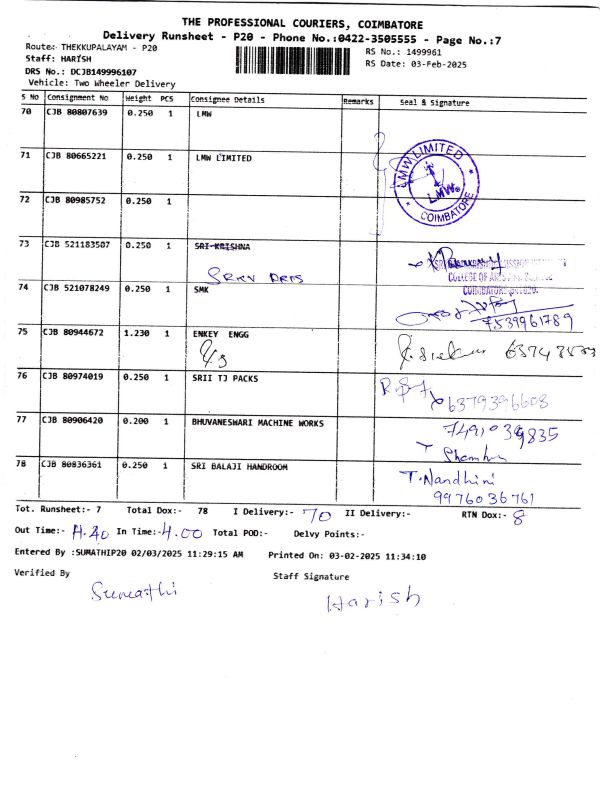 THE PROFESSIONAL COURIERS, COIMBATORE
Delivery Runsheet - P20 - Phone No.:0422-3505555 - Page No.:7
Route:- THEKKUPALAYAM - P20
RS No.: 1499961
Staff: HARISH
RS Date: 03-Feb-2025
DRS No.: DCJB149996107
Vehicle: Two Wheeler Delivery
S No Consignment No Weight PCS Consignee Details Remarks Seal & Signature
70 CJB 80807639 0.250 1 LMW
71 CJB 80665221 0.250 1 LMW LIMITED
LMW LIMITED
LMW
COIMBATORE
72 CJB 80985752 0.250 1
73 CJB 521183507 0.250 1 SRI KRISHNA
SRKV
COLLEGE OF ARTS
74 CJB 521078249 0.250 1 SMK
7539961789
75 CJB 80944672 1.230 1 ENKEY ENGG
76 CJB 80974019 0.250 1 SRII TJ PACKS
6379396608
77 CJB 80906420 0.200 1 BHUVANESWARI MACHINE WORKS
78 CJB 80836361 0.250 1 SRI BALAJI HANDROOM
T. Nandhini
9976036761
Tot. Runsheet:- 7 Total Dox:- 78 I Delivery:- 70 II Delivery:- RTN Dox:- 8
Out Time:- In Time:- 4.00 Total POD:- Delvy Points:-
Entered By :SUMATHIP20 02/03/2025 11:29:15 AM Printed On: 03-02-2025 11:34:10
Verified By
Staff Signature
Sumathi
Harish